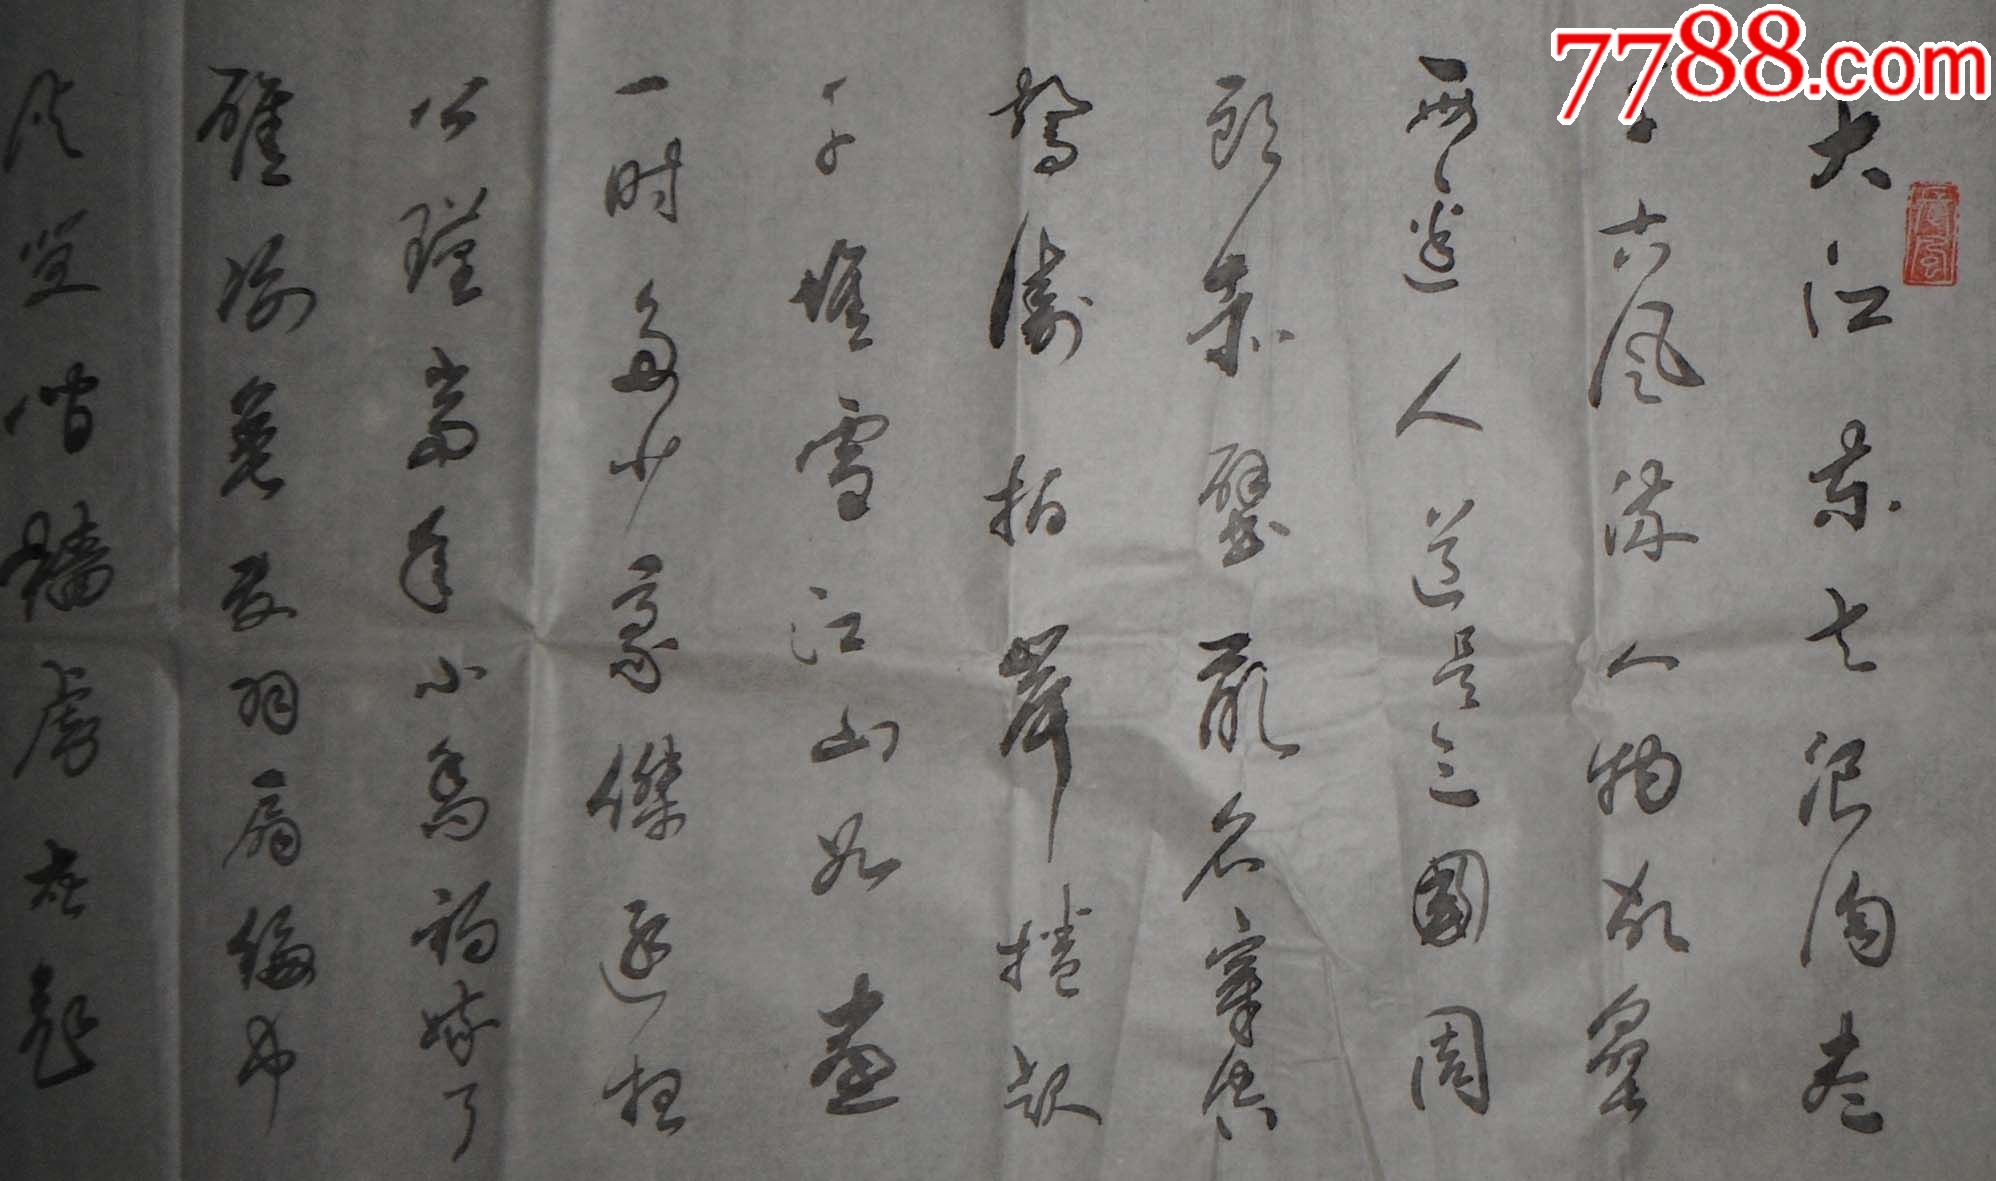 7788.com
大江东去浪淘尽
千古风流人物故垒
西边人道是三國周
郎赤壁亂石穿空
驚濤拍岸捲起
千堆雪江山如畫
一时多少豪傑遥想
公瑾當年小喬初嫁了
雄姿英发羽扇綸巾
談笑間檣虜灰飛